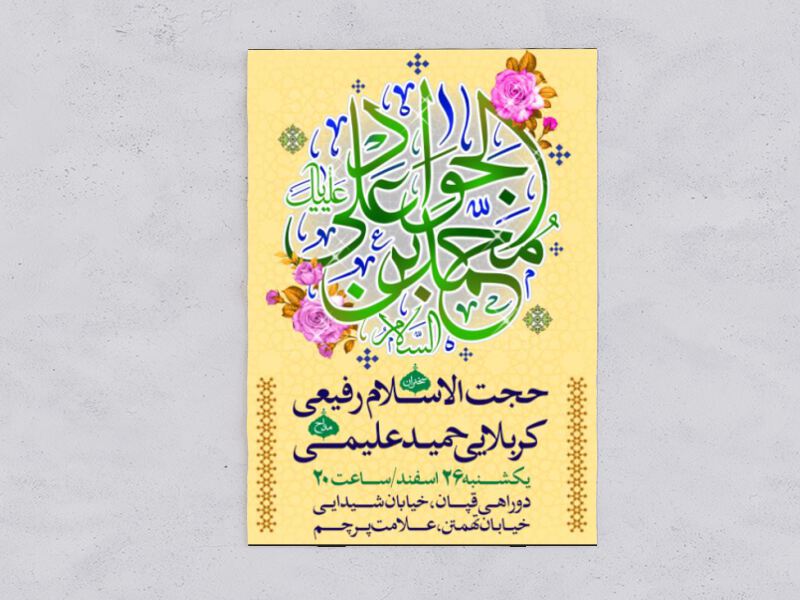 محمد بن علی الجواد
علیه السلام
سخنران
حجت الاسلام رفیعی
مداح
کربلایی حمید علیمی
یکشنبه ۲۶ اسفند/ساعت ۲۰
دوراهی قپان، خیابان شیدایی
خیابان تهمتن، علامت پرچم